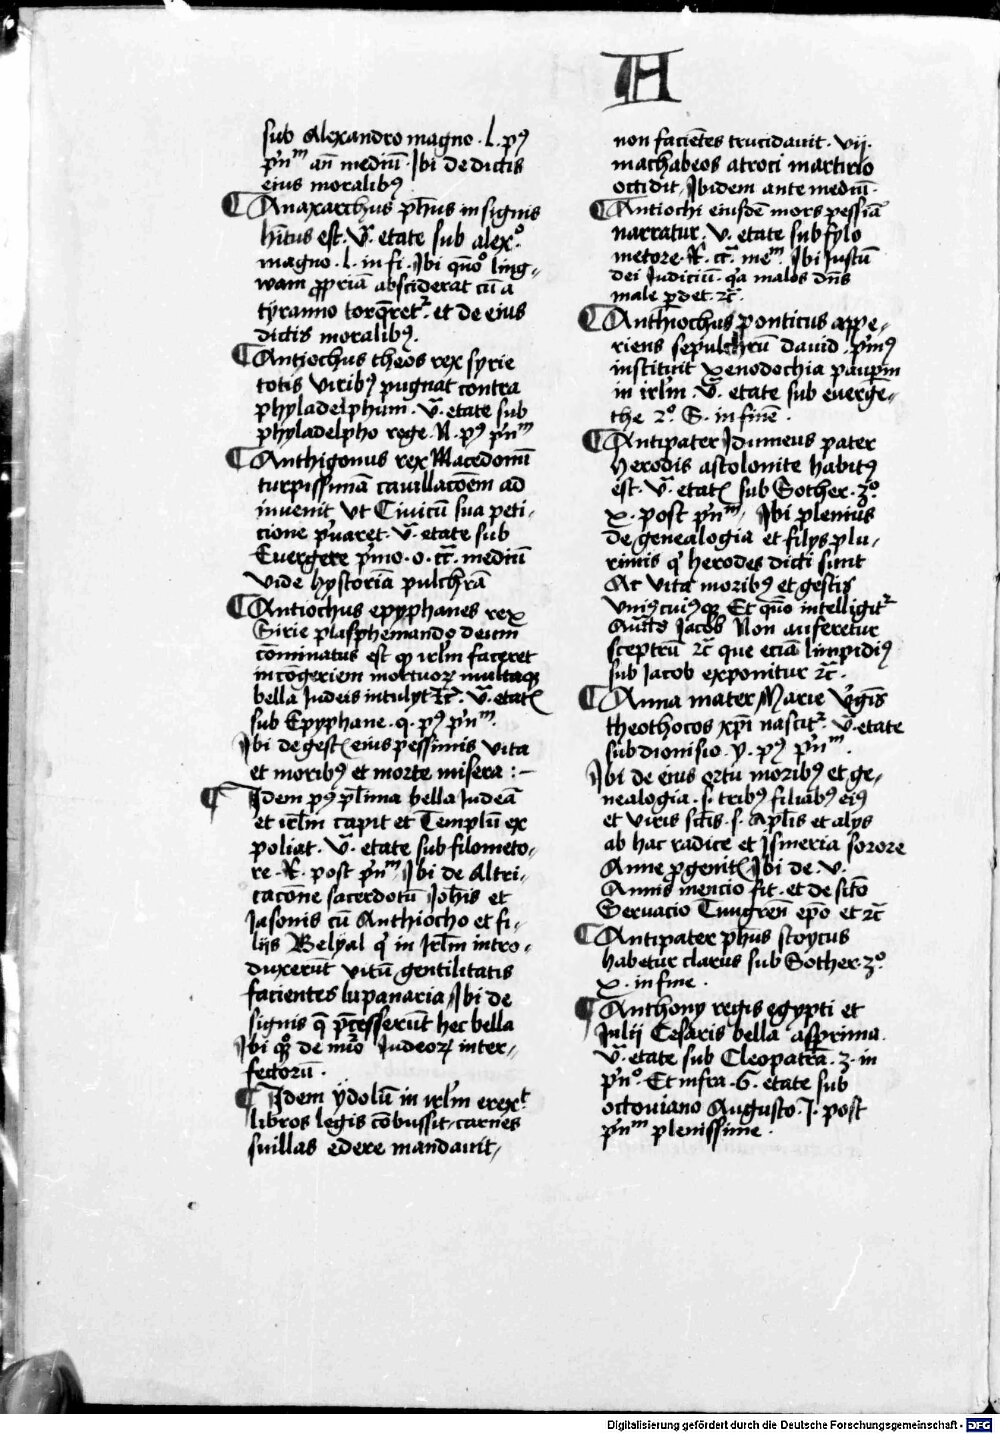 A
sub Alexandro magno . l . pꝰ
pͥnᵐ an̄ mediū . Ibi de dictis
eius moralibꝰ
¶ Anaxarchus ph̄us insignis
hītus est . v̄ . etate sub alexº
magno . l . in fi . Ibi qn̄o ling⸗
wam ꝓpriā absciderat cū a
tyranno torq̄retᷣ . et de eius
dictis moralibꝰ .
¶ Antiochus theos rex syrie
totis viribꝰ pugnat contra
phyladelphum . v̄ . etate sub
phyladelpho rege . N . pꝰ pͥnᵐ
¶ Anthigonus rex Macedonū
turpissimā cavillacōem ad
invenit vt Civicū sua peti⸗
cione pͥvaret . v̄ . etate sub
Evergete pͥmo . o . cc̄ . mediū
vide hystoriā pulchrā
¶ Antiochus epyphanes rex
Sirie plasphemando deum
cōminatus est ꝙ irlm̄ faceret
in cōgeriem mortuoꝝ multaqꝫ
bella Iudeis intulyt ꝛc̄ . v̄ . etatꝭ
sub Epyphane . q . pꝰ pͥnᵐ .
Ibi de gestꝭ eius pessimis vita
et moribꝰ et morte misera : ⁓
¶ Idem pꝰ pl̄ima bella Iudeā
et irlm̄ capit et Templū ex
poliat . v̄ . etate sub filometo⸗
re . R . post pͥnᵐ Ibi de Altri⸗
cacōne sacerdotū Joh̄is et
Jasonis cū Anthiocho et fi⸗
liis Belyal qͥ in Irlm̄ intro⸗
duxerūt vitū gentilitatis
facientes lupanaria Ibi de
signis q̄ p̄cesserūt hec bella
Ibi qqº de mͥo Iudeoꝝ inter⸗
fectorū .
¶ Idem ydolū in irlm̄ erexᵗ
libros legis cōbussit carnes
suillas edere mandavit⸗
non faciētes trucidavit . vii .
machabeos atroci martirio
occidit Ibidem ante mediū .
¶ Antiochi eiusdē mors pessīa
narratur . v . etate sub fylo
metore . R . cc̄ . meᵐ . Ibi Iustū
dei Iudiciū . qͣ malos dn̄s
male ꝑdet . ꝛc̄ .
¶ Anthiochus ponticus appe⸗
riens sepulchrū david . pͥmꝰ
instituit xenodochia paupm̄
in irlm̄ . v̄ . etate sub everge⸗
the 2º . S . in finē .
¶ Antipater Idumeus pater
Herodis astolonite habitꝰ
est . v̄ . etatꝭ sub Sother . ʒº
x . post pͥnᵐ Ibi pleniꝰ
de genealogia et filys plu⸗
rimis qͥ herodes dicti sunt
Ac vita moribꝰ et gestis
vniꝰcuiꝰqꝫ Et qn̄o intelligitᷣ
Au̅ctas Jacob Non auferetur
sceptrū ꝛc̄ que eciā limpidiꝰ
sub Jacob exponitur ꝛc̄ .
¶ Anna mater Marie vͥgīs
theothocos xp̄i nascitᷣ . v̄ . etate
sub dionisio . y . pꝰ pͥnᵐ .
Ibi de eius ortu moribꝰ et ge⸗
nealogia . s . tribꝰ filiabꝰ eiꝰ
et viris sc̄tis . s . Apl̄is et alys
ab hac radice et Ismeria sorore
Anne ꝓgenitꝭ Ibi de . v .
Annis mencio fit . et de sc̄to
Servacio Tungren̄ epō et ꝛc̄
¶ Antipater ph̄us stoycus
habetur clarus sub Sother . ʒº
x . in fine .
¶ Anthony regis egypti et
Julii Cesaris bella asperima
v̄ . etate sub Cleopatra . ʒ . in
pͥnº . Et infra . 6 . etate sub
octoviano Augusto . I . post
pͥnᵐ plenissime .
Digitalisierung gefördert durch die Deutsche Forschungsgemeinschaft - DFG